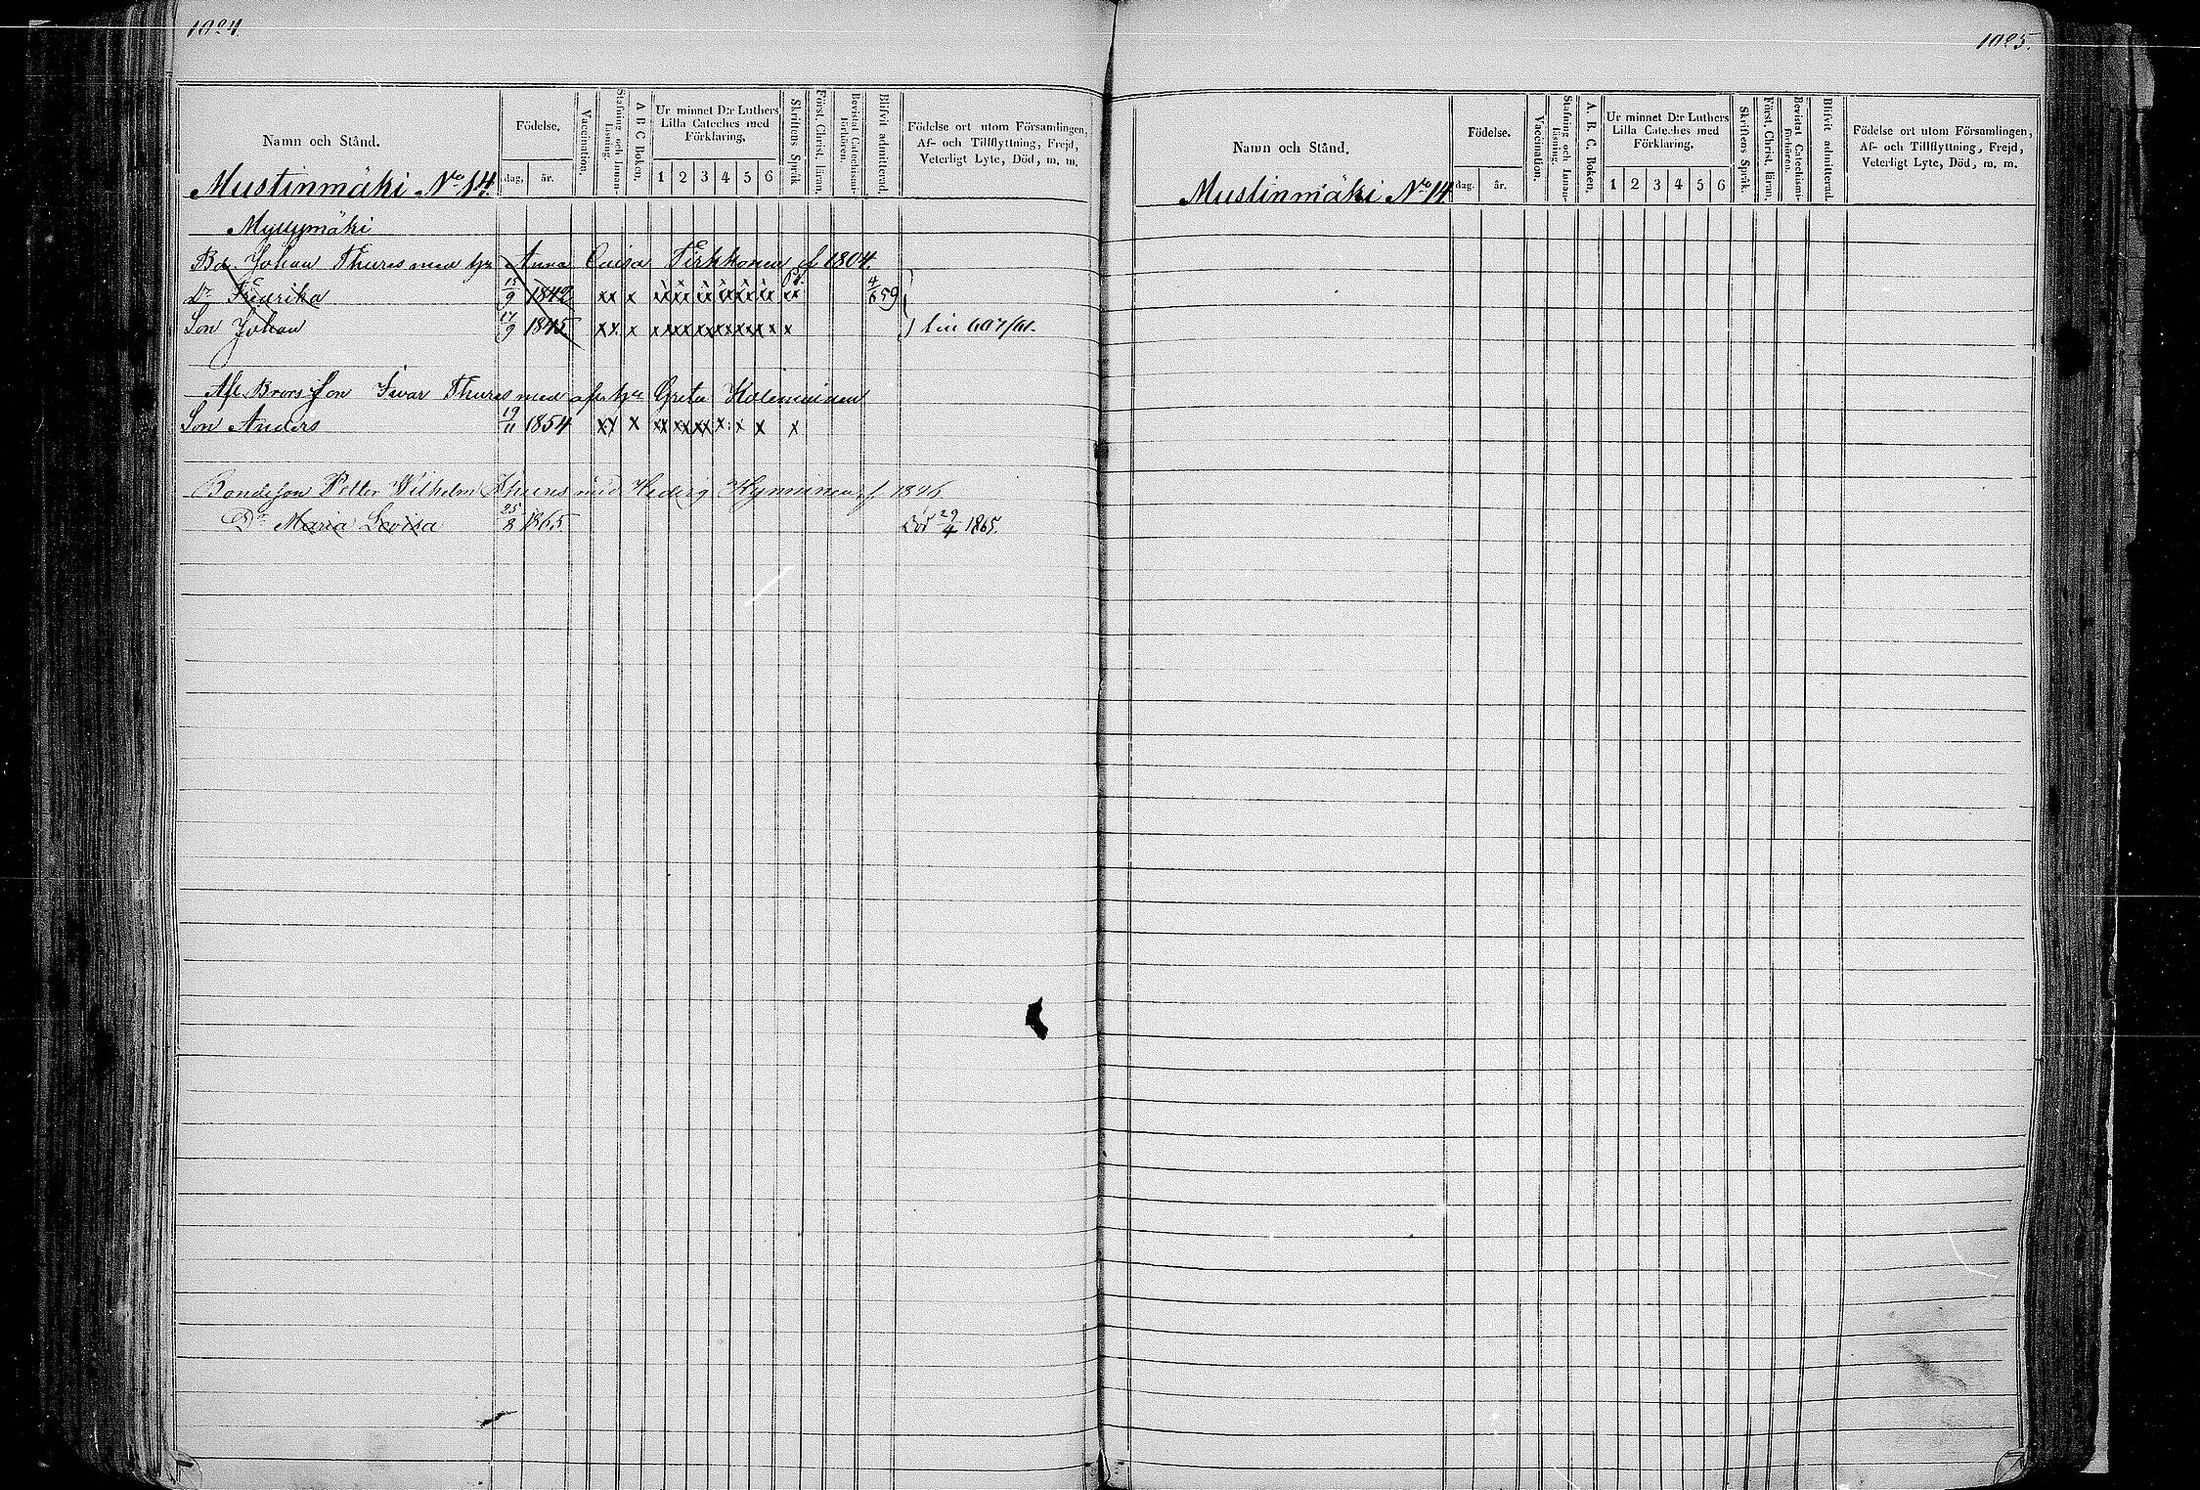 1024.
Namn och Stånd.
Födelse,
dag,
år.
Vaccination,
Stafning och Innan-
läsning.
A B C Boken,
Ur minnet D:r Luthers
Lilla Cateches med
Förklaring,
1 2 3 4 5 6
Skriftens Språk
Först. Christ. läran,
Bevistat Catechismi-
förhören.
Blifvit admitterad.
Födelse ort utom Församlingen,
Af- och Tillflyttning, Frejd,
Veterligt Lyte, Död, m. m.
Mustinmäki No 14.
Myllymäki
Bd. Johan Thures med hu Anna Cuisa Tirkkonen f 1804.
Dr Fredrika 15/9 1842 xx x 4/6 59
Son Johan 17/9 1845 xx x
Afl. Brors Son Ivar Thures med Greta
Son Anders 19/11 1854 xx x
Bondeson Petter Vilhelm Thures med Hedvig Hynninen f. 1846
Dr Maria Lovisa 25/2 1865 Död 29/4 1865.
1025.
Namn och Stånd.
Födelse.
dag.
år.
Vaccination.
Stafning och Innan-
läsning.
A. B. C. Boken.
Ur minnet D:r Luthers
Lilla Cateches med
Förklaring.
1 2 3 4 5 6
Skriftens Språk.
Först. Christ. läran,
Bevistat Catechismi-
förhören.
Blifvit admitterad.
Födelse ort utom Församlingen,
Af- och Tillflyttning, Frejd,
Veterligt Lyte, Död, m. m.
Mustinmäki No 14